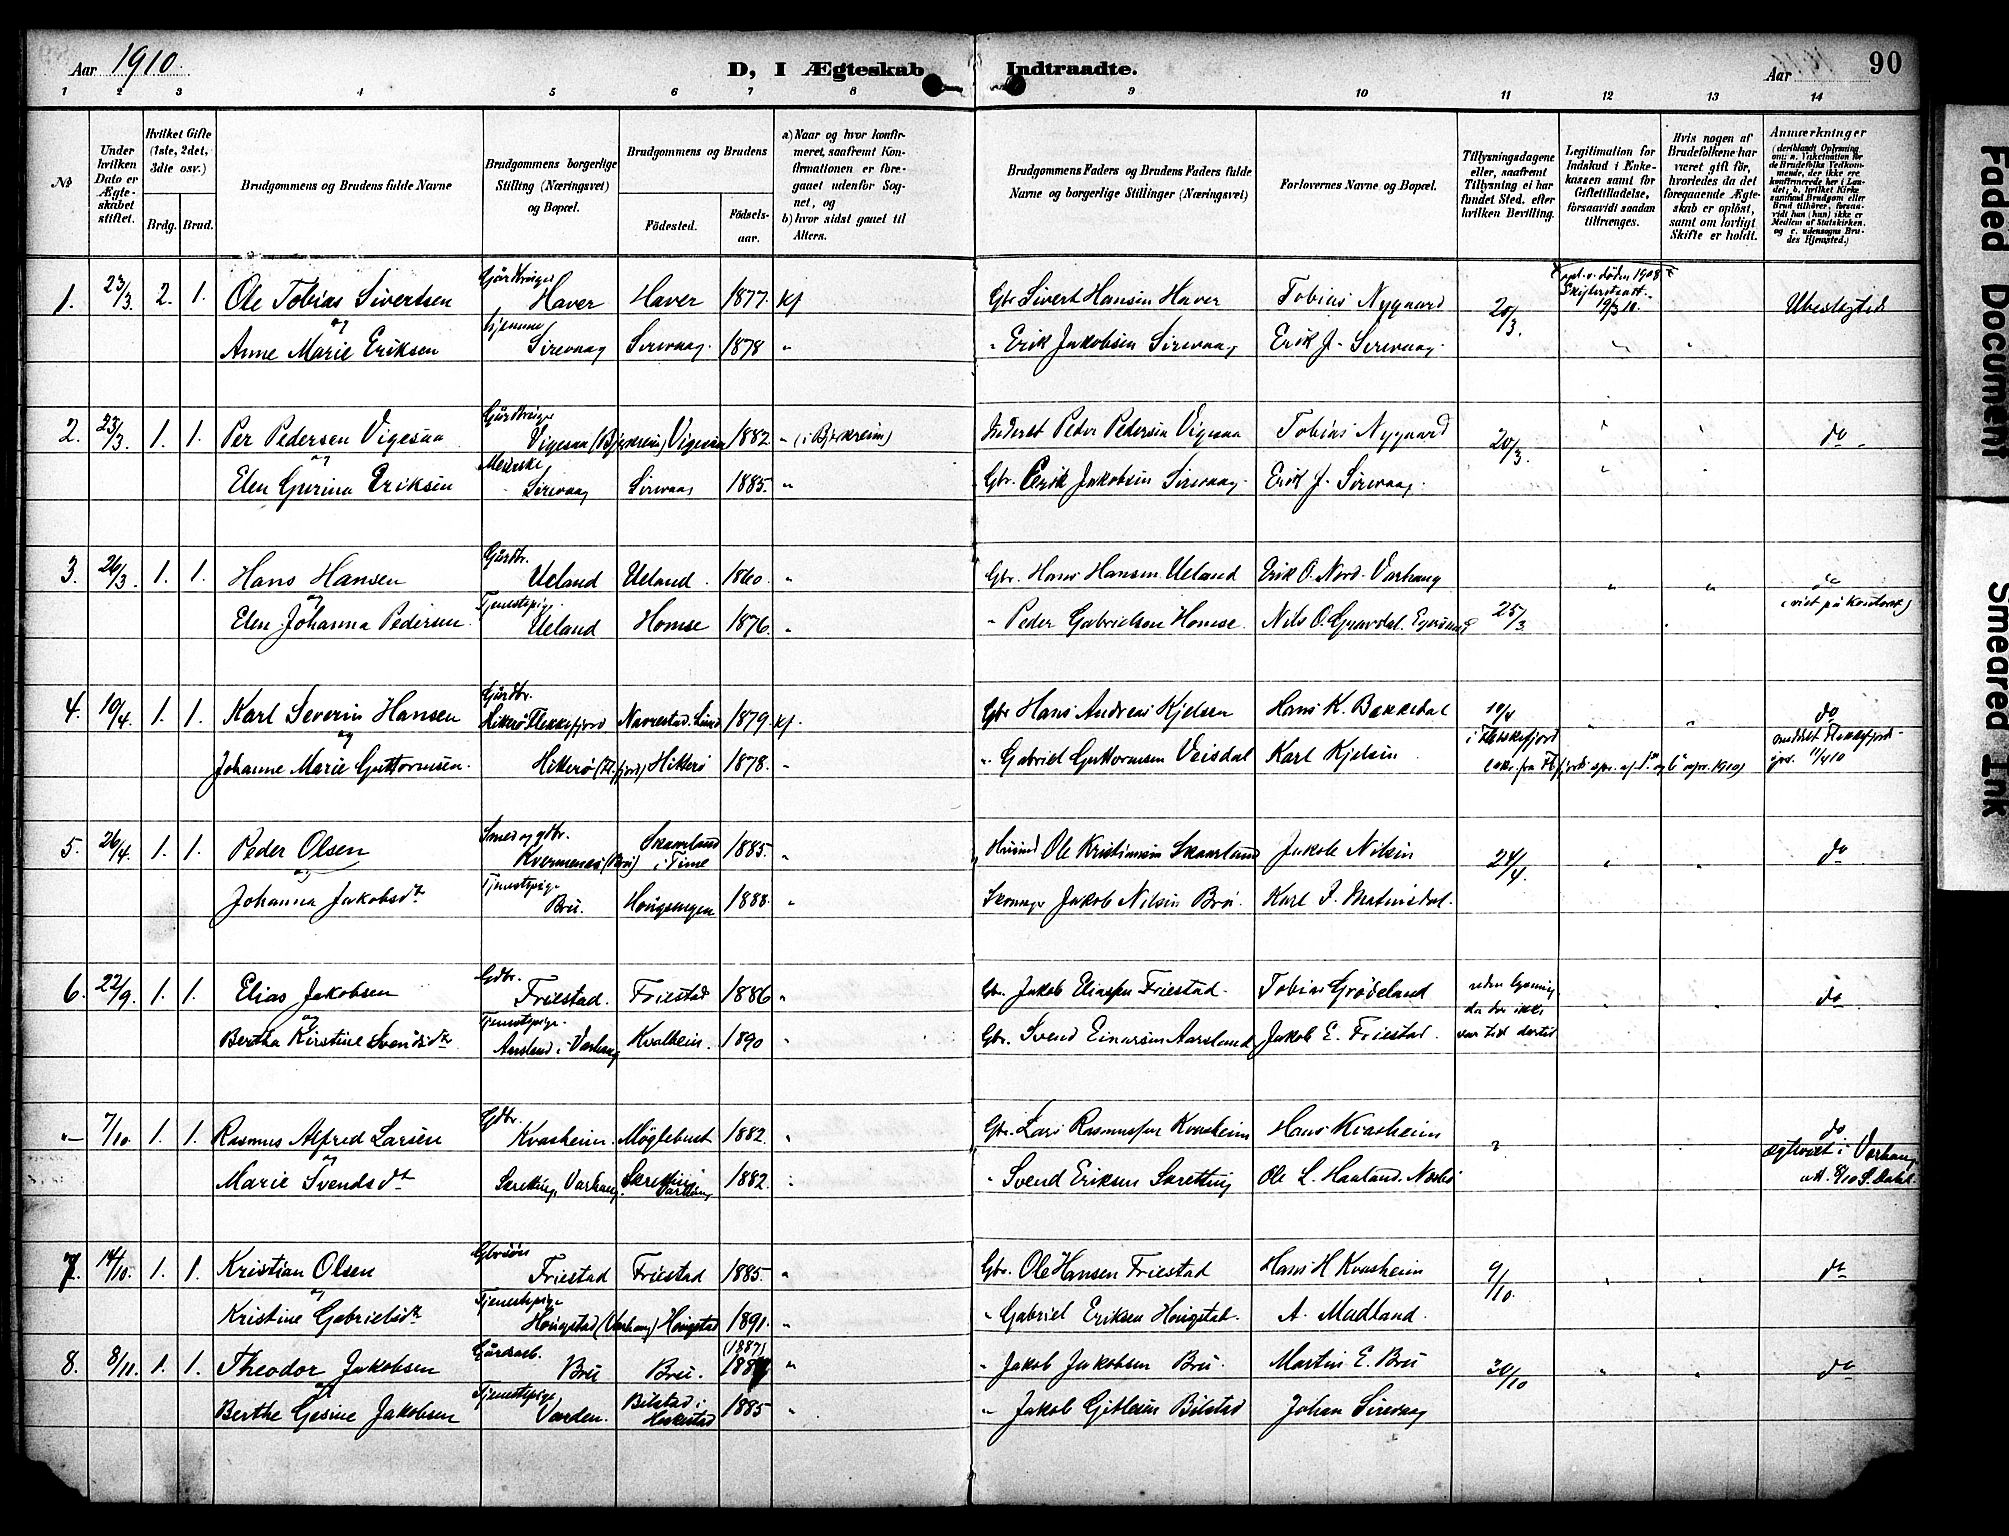 Aar 1910.
D, I Ægteskab Indtraadte.
Aar
90
1 2 3 4 5 6 7 8 9 10 11 12 13 14
№
Under hvilken Dato er Ægteskabet stiftet.
Hvilket Gifte (1ste, 2det, 3die osv.)
Brdg. Brud.
Brudgommens og Brudens fulde Navne
Brudgommens borgerlige Stilling (Næringsvei) og Bopæl.
Brudgommens og Brudens
Födested.
Födselsaar.
a) Naar og hvor konfirmeret, saafremt Konfirmationen er foregaaet udenfor Sognet, og
b) hvor sidst gaaet til Alters.
Brudgommens Faders og Brudens Faders fulde Navne og borgerlige Stillinger (Næringsvei)
Forlovernes Navne og Bopæl.
Tillysningsdagene eller, saafremt Tillysning ei har fundet Sted, efter hvilken Bevilling.
Legitimation for Indskud i Enkekassen samt for Giftetilladelse, forsaavidt saadan tiltrænges.
Hvis nogen af Brudefolkene har været gift för, hvorledes da det foregaaende Ægteskab er oplöst, samt om lovligt Skifte er holdt.
Anmærkninger (deriblandt Oplysning om: a. Vakcination for de Brudefolks Vedkommende, der ikke ere konfirmerede her i Landet, b. hvilket Kirkesamfund Brudgom eller Brud tilhörer, forsaavidt han (hun) ikke er Medlem af Statskirken, og c. udensogns Brudes Hjemsted.)
1. 23/3 2. 1. Ole Tobias Sivertsen Haver Haver 1877. kf Gbr Sivert Hansen Haver Tobias Nygaard 20/3. 19/3 10. Ubeslægtede
og
Anne Marie Eriksen hjemme Sirevaag Sirevaag. 1878 " " Erik Jakobsen Sirevaag Erik J. Sirevaag.
2. 23/3. 1. 1. Per Pedersen Vigesaa Vigesaa (Bjerkreim) Vigesaa 1882. " (i Bjerkreim) Peder Pedersen Vigesaa Tobias Nygaard 20/3. do
og
Elen Gurina Eriksen Sirevaag Sirevaag 1885. " Gbr. Erik Jakobsen Sirevaag. Erik J. Sirevaag.
3. 26/3. 1. 1. Hans Hansen Gårdbr. Ueland Ueland. 1860. " Gbr. Hans Hansen Ueland Erik O. Nord-Varhaug " " do
og (vist på kontoret)
Elen Johanna Pedersen Tjenestepige Ueland Homse 1876. " " Peder Gabrielsen Homse. Nils O. Gravdal. Egersund 25/3.
4. 10/4. 1. 1. Karl Severin Hansen Gårdbr. Hitterø Flekkefjord Navrestad. Lund 1879. kf. Gbr Hans Andreas Kjelsen Hans K. Bakkedal 10/4 i Flekkefjord " " do
og
Johanne Marie Guttormsen. Hitterø (Fl.fjord) Hitterø 1878. " " Gabriel Guttormsen Veisdal Karl Kjelsen
5. 26/4. 1. 1. Peder Olsen Smed og gdbr. Kvermenes (Bru) Skaarland i Time 1885. " Ole Kristiansen Skaarland Jakob Nilsen 24/4. " " do
og
Johanna Jakobsdtr Tjenestepige Bru. 1888. " Jakob Nilsen Bru. Karl F.
6. 22/9. 1. 1. Elias Jakobsen Gdbr. Friestad. Friestad 1886 " Gbr. Jakob Eliassen Friestad. Tobias Grødeland uden lysning da der ikke var tid dertil " " do
og
Bertha Kirstine Svendsdtr Tjenestepige. Aasland i Varhaug Kvalbein. 1890 " Gbr. Svend Einarsen Aarsland Jakob E. Friestad.
"— 7/10 1. 1. Rasmus Alfred Larsen Gdbr. Kvasheim. Møglebust 1882. " Gbr. Lars Rasmussen Kvasheim Hans Kvasheim " " " do
og ægteviet i Varhaug
Marie Svendsdtr Varhaug. Varhaug 1882. " " Svend Eriksen Ole L. Haaland. Nærbø
7. 14/10. 1. 1. Kristian Olsen Friestad Friestad 1885. " Gbr. Ole Hansen Friestad Hans H Kvasheim 9/10. " " do
og
Kristine Gabrielsdtr Tjenestepige Hougstad (Varhaug) Hougstad 1891. " " Gabriel Eriksen Hougstad. A. Madland.
(1887)
8. 8/11. 1. 1. Theodor Jakobsen Gårdarb. Bru Bru. 1887 " " Jakob Jakobsen Bru. Martin E. Bru 30/10 " " do
og
Berthe Gesine Jakobsen Tjenestepige Varden. Bilstad i Heskestad 1885 " " Jakob Bilstad Johan Sirevaag
Faded Document
Smeared Ink